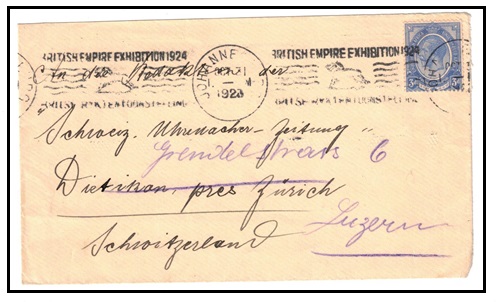 BRITISH EMPIRE EXHIBITION 1924
BRITISH EMPIRE EXHIBITION 1924
JOHANNE
1923
BRITSE RYKSTENTOONSTELLING
BRITSE RYKSTENTOONSTELLING
An die Redaktion der
"Schweiz. Uhrenacher-Zeitung"
Grendelstrass 6
Dietikon, pres Zürich
Luzern
Schwitzerland